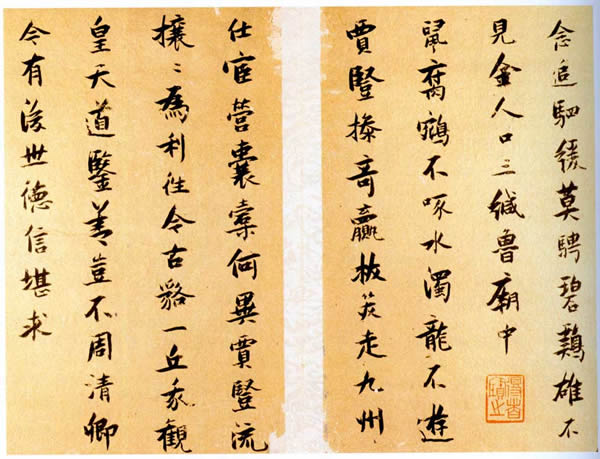 念追駟緩莫騁碧鷄雄不
見金人口三緘魯廟中
鼠腐鴟不啄水濁龍不遊
賈豎操奇贏走九州
仕宦營囊橐何異賈豎流
攘〻為利往今古貉一丘我觀
皇天道鑒善豈不周清卿
令有後世德信堪求